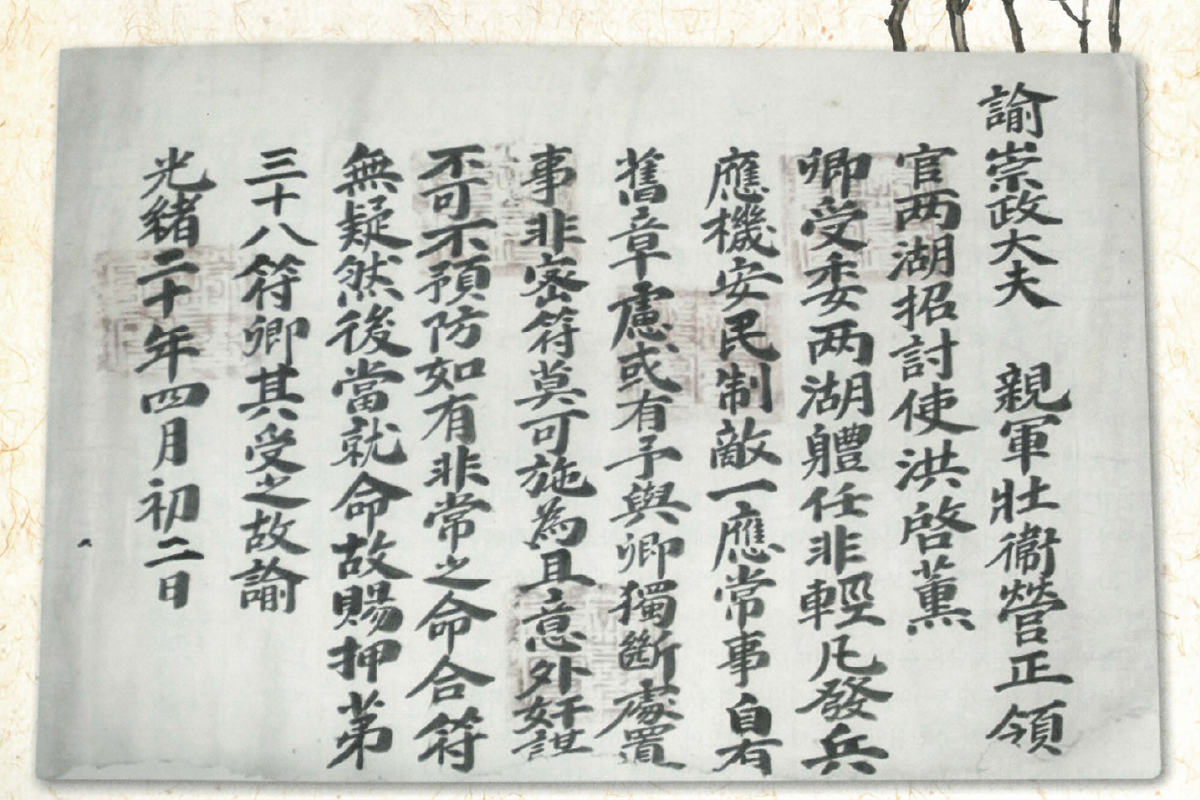 諭崇政大夫 親軍壯衞營正領
官两湖招討使洪啓薫
卿受委两湖軆任非輕凡發兵
應機安民制敵一應常事自有
舊章慮或有予與卿獨斷處置
事非密符莫可施為且意外奸謀
不可不預防如有非常之命合符
無疑然後當就命故賜押第
三十八符卿其受之故諭
光緒二十年四月初二日